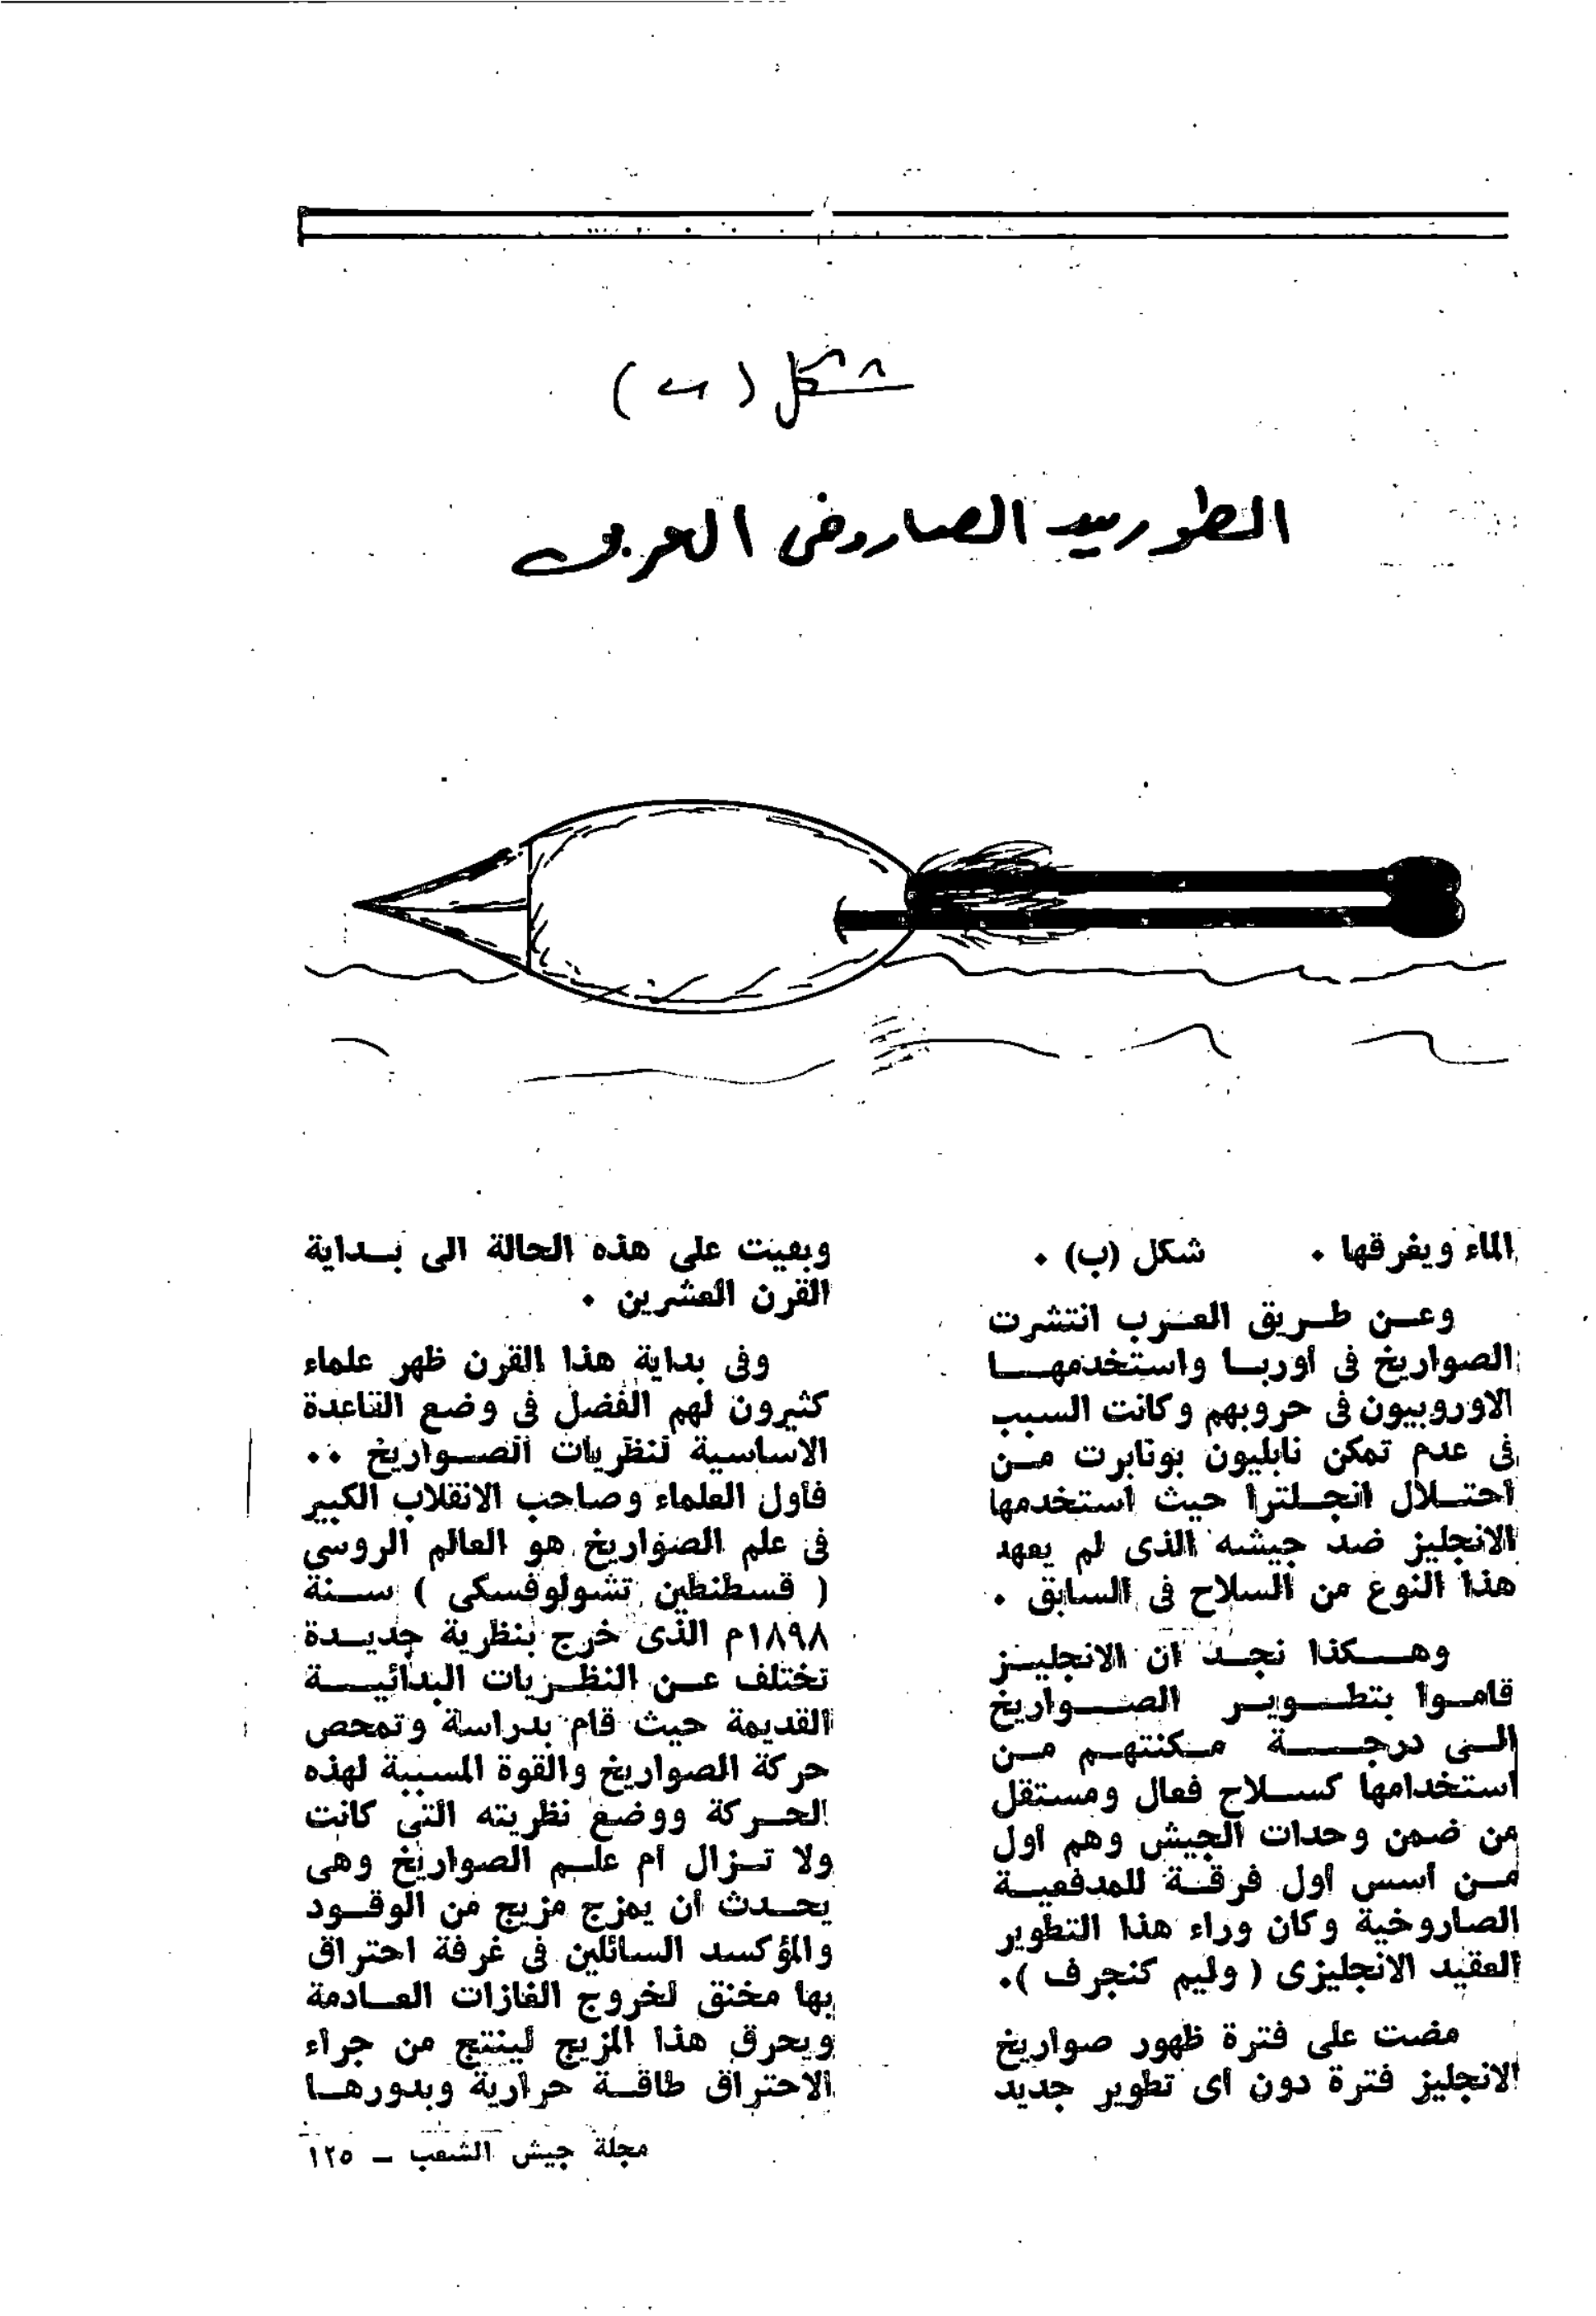 شكل (ب)
الطوربيد الصاروخى العربى
الماء ويغرقها • شكل (ب) •
وعـــن طـــريق العـــرب انتشرت
الصواريخ فى أوربـــا واستخدمهـــا
الاوروبيون فى حروبهم وكانت السبب
فى عدم تمكن نابليون بونابرت مـــن
احتـــلال انجـــلترا حيث استخدمها
الانجليز ضد جيشه الذى لم يعهد
هذا النوع من السلاح فى السابق •
وهـــكذا نجـــد ان الانجليـــز
قامـــوا بتطـــويـــر الصـــواريخ
الـــى درجـــة مـــكنتهـــم مـــن
استخدامها كســـلاح فعال ومستقل
من ضمن وحدات الجيش وهم أول
مـــن أسس أول فرقـــة للمدفعيـــة
الصاروخية وكان وراء هذا التطوير
العقيد الانجليزى ( وليم كنجرف )•
مضت على فترة ظهور صواريخ
الانجليز فترة دون أى تطوير جديد
وبقيت على هذه الحالة الى بـــداية
القرن العشرين •
وفى بداية هذا القرن ظهر علماء
كثيرون لهم الفضل فى وضع القاعدة
الاساسية لنظريات الصـــواريخ ••
فأول العلماء وصاحب الانقلاب الكبير
فى علم الصواريخ هو العالم الروسى
( قسطنطين تشولوفسكى ) ســـنة
١٨٩٨م الذى خرج بنظرية جديـــدة
تختلف عـــن النظـــريات البدائيـــة
القديمة حيث قام بدراسة وتمحص
حركة الصواريخ والقوة المسببة لهذه
الحـــركة ووضع نظريته التى كانت
ولا تـــزال أم علـــم الصواريخ وهى
يحـــدث أن يمزج مزيج من الوقـــود
والمؤكسد السائلين فى غرفة احتراق
بها مخنق لخروج الغازات العـــادمة
ويحرق هذا المزيج لينتج من جراء
الاحتراق طاقـــة حرارية وبدورهـــا
مجلة جيش الشعب – ١٢٥